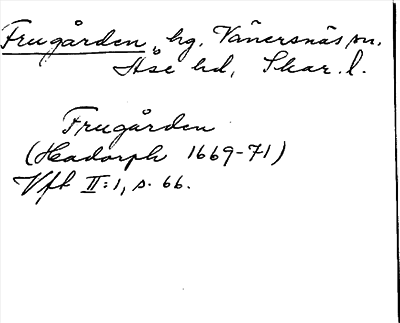 Frugården, hg, Vänersnäs sn.
Åse hd, Skar. l.
Frugården
(Hadorph 1669-71)
Vft II:1, s. 66.